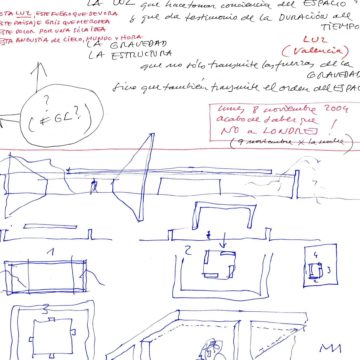 LA LUZ que hace tomar conciencia del ESPACIO
ESTA LUZ, ESTE FUEGO QUE DEVORA
& que da testimonio de la DURACIÓN del
TIEMPO
ESTE PAISAJE GRIS QUE ME RODEA
ESTE DOLOR POR UNA SOLA IDEA
ESTA ANGUSTIA DE CIELO, MUNDO Y HORA
LUZ
(Valencia)
LA GRAVEDAD
LA ESTRUCTURA
que no sólo transmite las fuerzas de la
GRAVEDAD
sino que también transmite el orden del ESPACIO
?
lunes, 8 noviembre 2004
acabo de saber que
NO a LONDRES!
(9 noviembre x la noche)
1
2
3
4
3